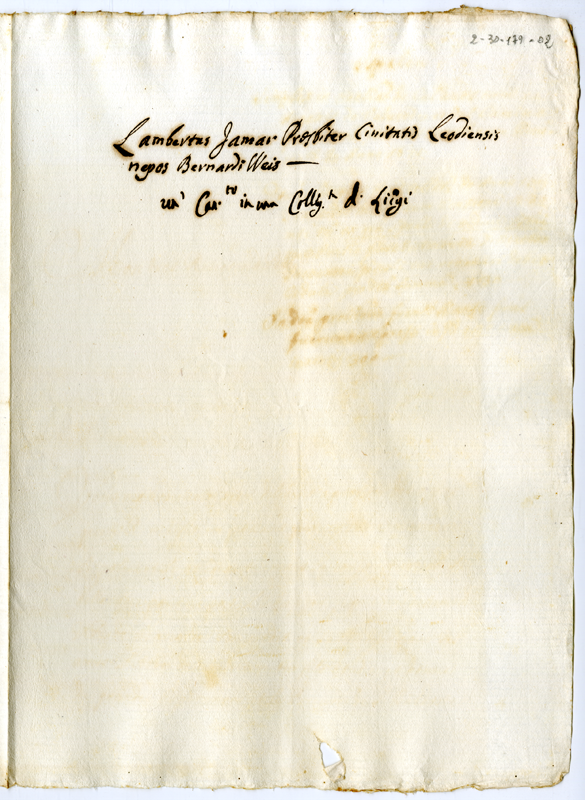 2-30-179-02
Lambertus Jamar Presbiter Ciuitatis Leodiensis
nepos Bernardi Weis —
un' Can.to in una Colleg.ta di Liegi